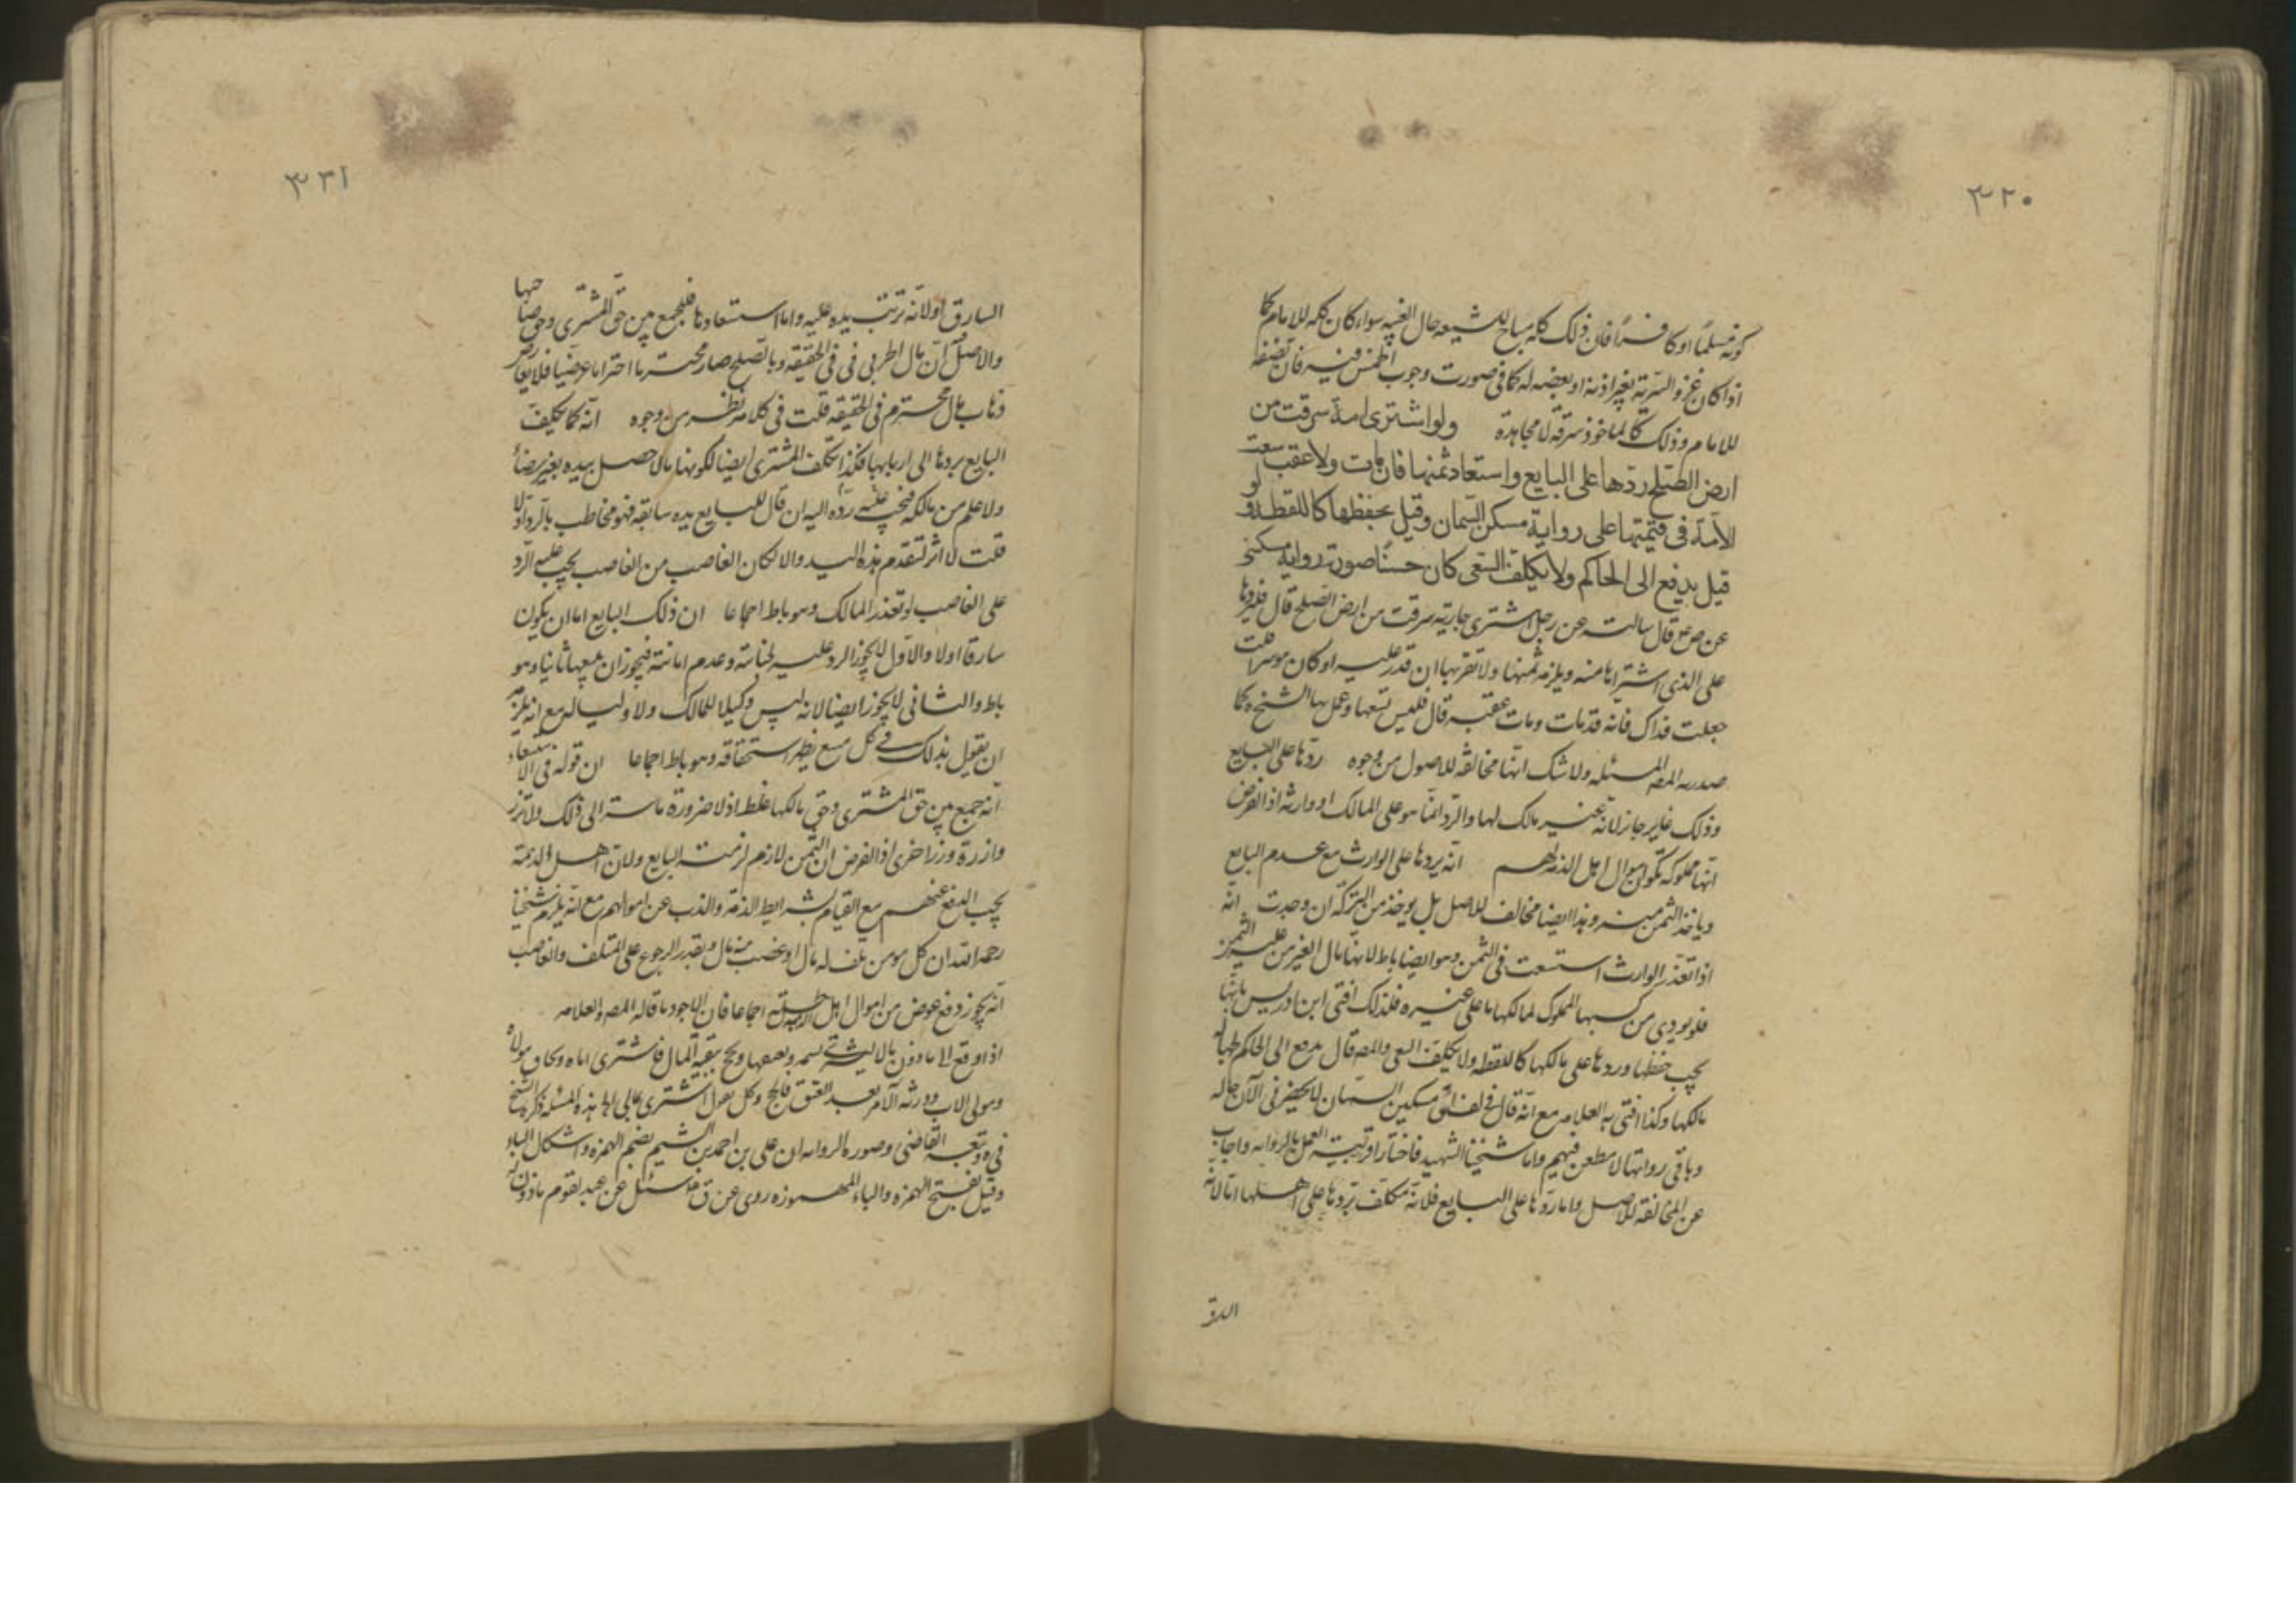 ٣٢٠
كونه مسلمًا او كافرًا فان ذلك كله مباح للشيعه حال الغيبه سواء كان كله للامام كما
اذا كان غزو السرية بغير اذنه او بعضه له كما فى صورت وجوب الخمس فيه فان نصفه
للامام وذلك كالماخوذ سرقة لا مجاهدة ولو اشترى امة سرقت من
ارض الصلح ردّها على البايع واستعاد ثمنها فان مات ولا عقب سعت
الامة فى قيمتها على رواية مسكين السمان وقيل يحفظها كاللقطة ولو
قيل يدفع الى الحاكم ولا يكلف السعى كان حسنًا صورت رواية مسكين
عن ص ع قال سالته عن رجل اشترى جارية سرقت من ارض الصلح قال فليردها
على الذى اشتراها منه ولا يقربها ان قدر عليه او كان موسرا قلت
جعلت فداك فانه قد مات ومات عقبه قال فليستسعها وعمل بها الشيخ ره كما
صدر به المصـ المسئله ولا شك انها مخالفة للاصول من وجوه ردّها على البايع
وذلك غير جائز لانه غير مالك لها والرد انما هو على المالك او وارثه اذ الفرض
انها مملوكة لكون اموال اهل الذمة لهم انه يردها على الوارث مع عدم البايع
وياخذ الثمن منه وهذا ايضا مخالف للاصل بل يوخذ من التركة ان وجدت انه
اذا تعذر الوارث استسعت فى الثمن وهو ايضا باطل لانها مال الغير من غير الثمن
فلو يودى من كسبها المملوك لمالكها ما على غيره فلذلك افتى ابن ادريس بانها
يجب حفظها وردها على مالكها كاللقطه ولا تكلف السعى والمصـ قال يدفع الى الحاكم
مالكها وكذا افتى به العلامه مع انه قال فى لف ان مسكين السمان لا يحضرنى الان حاله
وباقى رواتها لا مطعن فيهم واما شيخنا الشهيد فاختار اقربية العمل بالرواية واجاب
عن المخالفة للاصل واما ردّها على البايع فلانه مكلف بردها على اهلها اما لانه
السارق
٣٢١
السارق اولانه ترتب يده عليه واما استسعاءها فلجمع بين حق المشترى وحق صاحبها
والاصل ان مال الحربى فى فى الحقيقة وبالصلح صار محترما احتراما عرضيا فلا يعارض
ذهاب مال محترم فى الحقيقة قلت فى كلامه نظر من وجوه انه كما تكلف
البايع بردها الى اربابها فكذا تكلف المشترى ايضا لكونها مالا حصل بيده بغير رضا
ولا علم من مالكه فيجب عليه رده اليه ان قال للبايع يده سابقه فهو مخاطب بالرد اولا
قلت لا اثر لتقدم هذه اليد والا لكان الغاصب من الغاصب يجب عليه الرد
على الغاصب لو تعذر المالك وهو باطل اجماعا ان ذلك البايع اما ان يكون
سارقا اولا والاول لا يجوز الرد عليه لخيانته وعدم امانته فيجوز ان يبيعها ثانيا وهو
باطل والثانى لا يجوز ايضا لانه ليس وكيلا للمالك ولا وليا له مع انه يلزمه
ان يقول بذلك فى كل مبيع يظهر استحقاقه وهو باطل اجماعا ان قوله فى الاستسعاء
انه جمع بين حق المشترى وحق مالكها غلط اذ لا ضرورة ماسة الى ذلك ولا تزر
وازرة وزر اخرى اذ الفرض ان الثمن لازم لذمت البايع ولان اهل الذمة
يجب الدفع عنهم مع القيام بشرايط الذمة والذب عن اموالهم مع انه يلزم شيخنا
رحمه الله ان كل مومن تلف له مال او غصب منه مال وتعذر الرجوع على المتلف والغاصب
انه يجوز دفع عوض من اموال اهل الصلح اجماعا فان الاجود ما قاله المصـ والعلامه
اذا دفع الى ماذون مالا ليشترى نسمه ويعتقها ويحج ببقية المال فاشترى اباه وتحاق مولاه
ومولى الاب وورثة الآمر بعد العتق والحج وكل يقول اشترى بمالى هذه المسئله ذكرها الشيخ
فى يه وتبعه القاضى وصورة الروايه ان على بن احمد بن اشيم بضم الهمزه واشكال الياء
وقيل بفتح الهمزه والياء المهموزه روى عن ق ع سئل عن عبد لقوم ماذون له